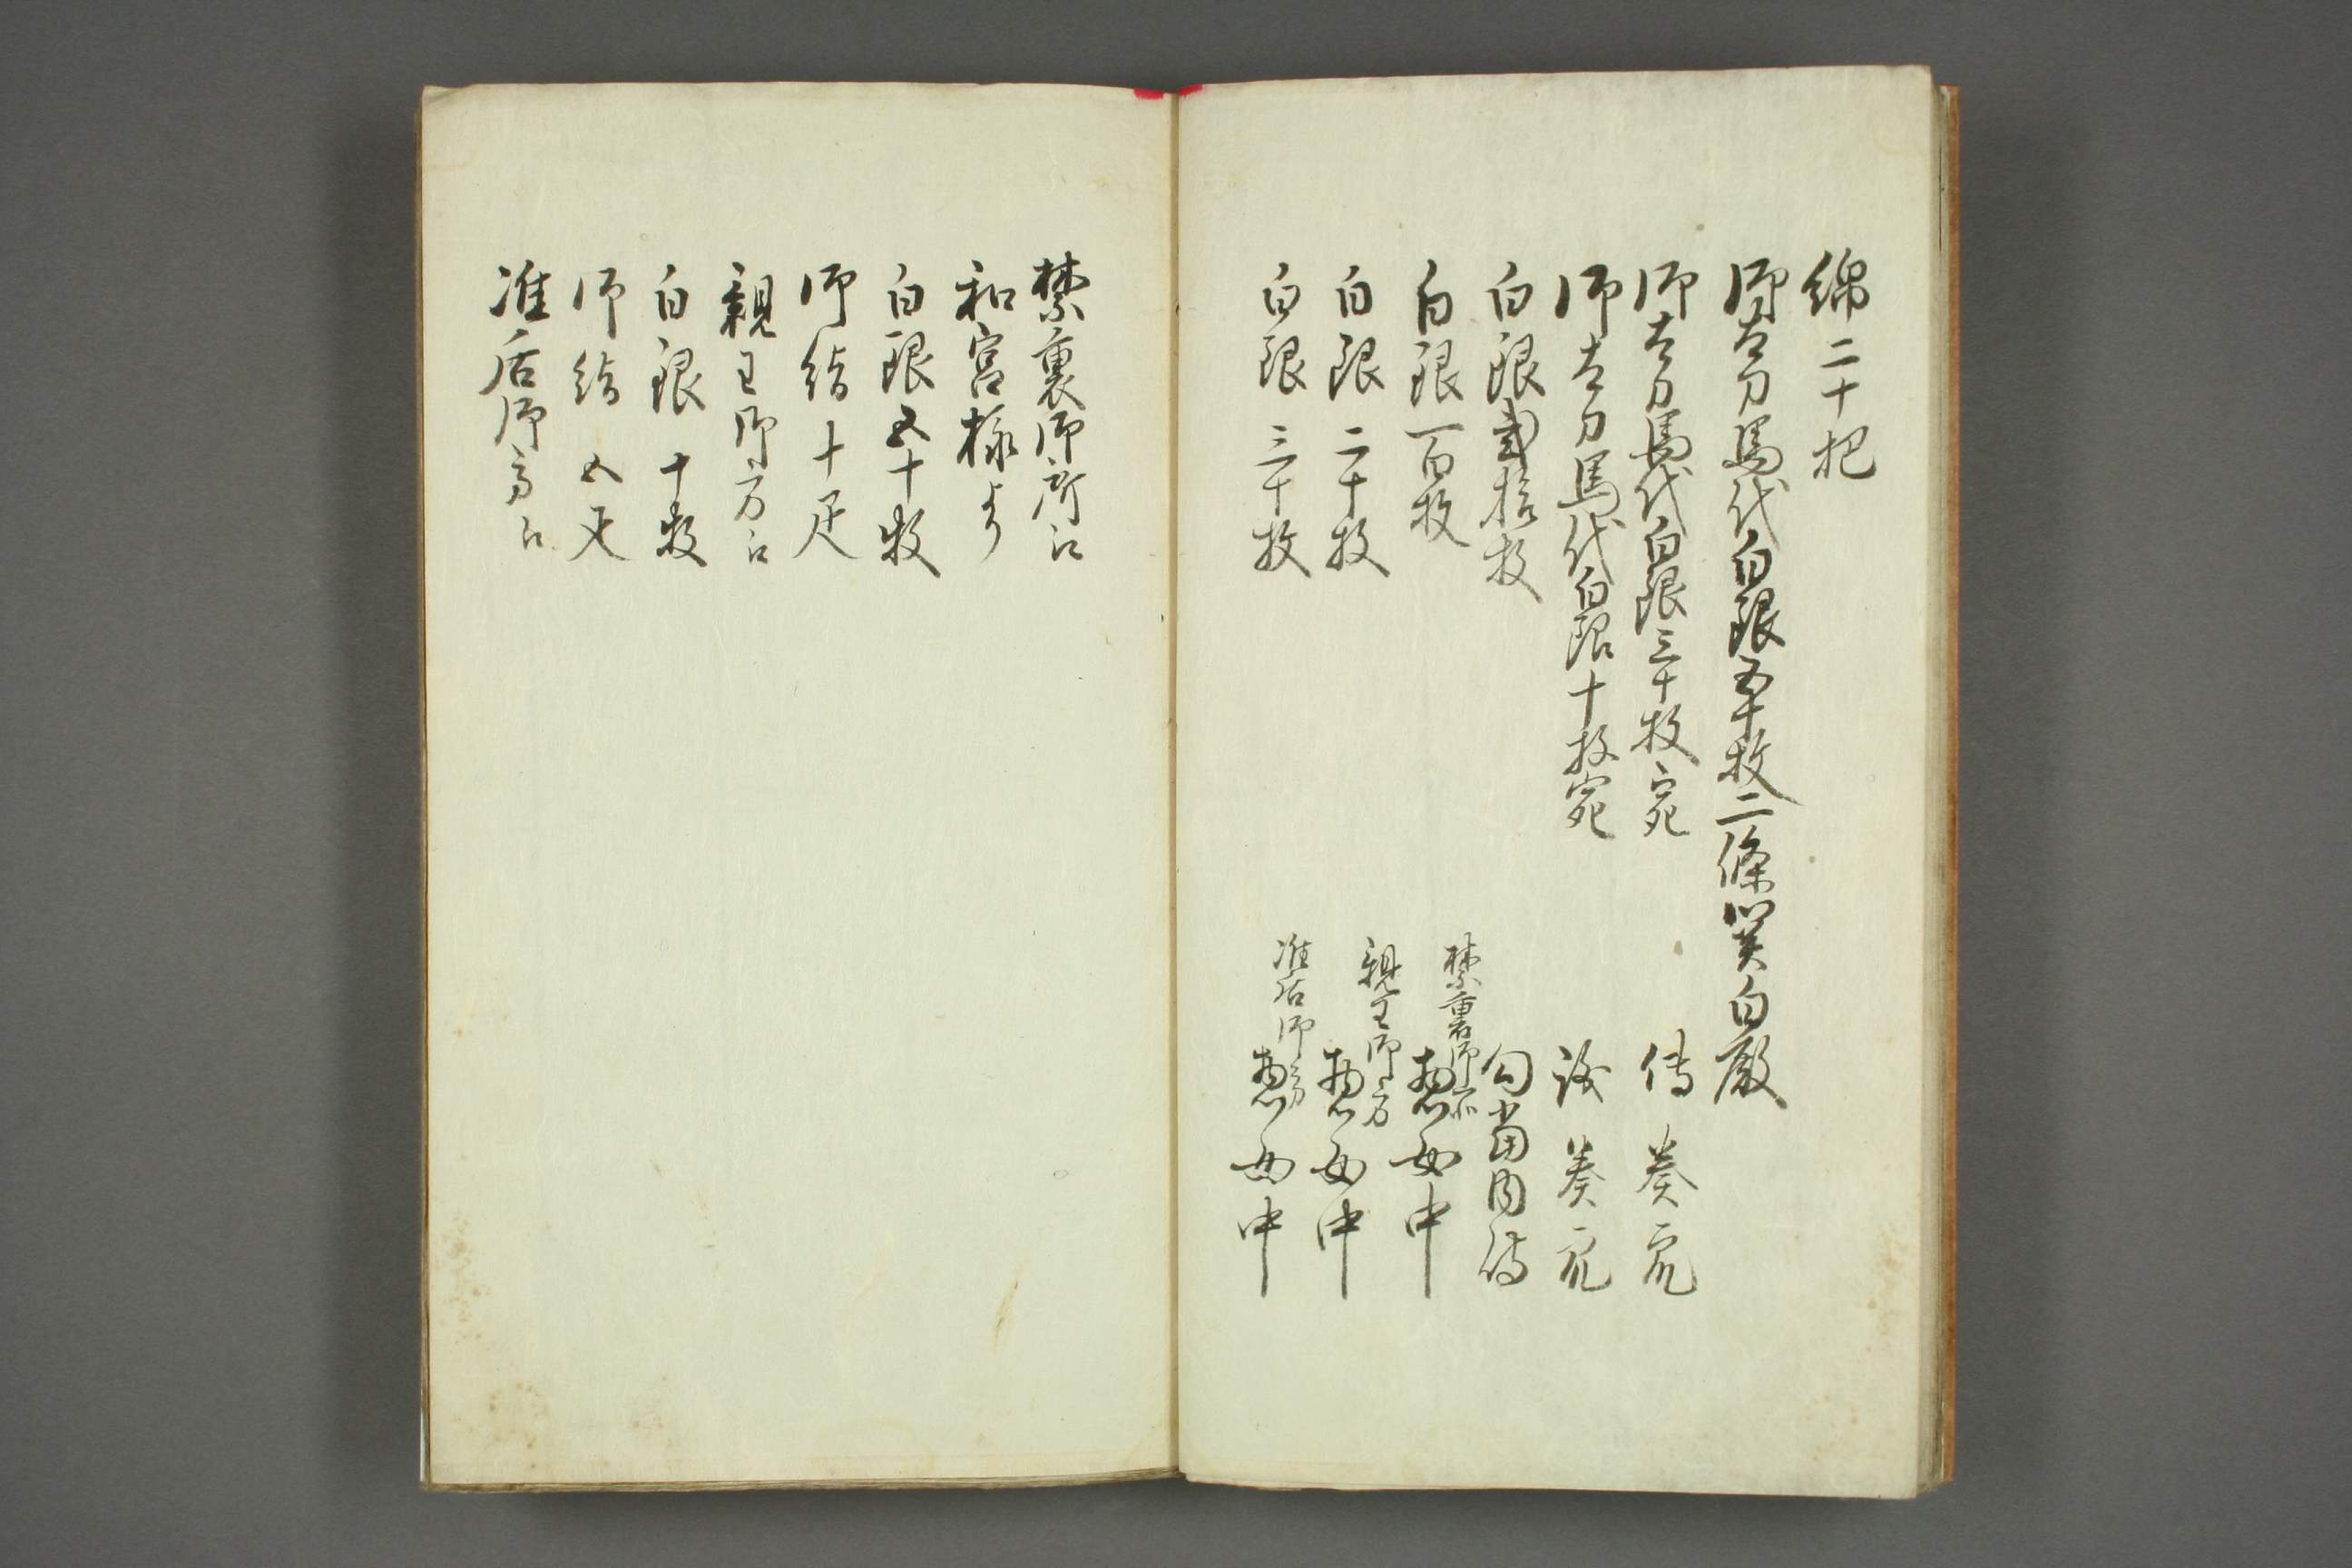 綿二十把
御太刀馬代白銀五十枚二條関白殿
御太刀馬代白銀三十枚宛 傳奏衆
御太刀馬代白銀十枚宛 議奏衆
白銀貳拾枚 勾當内侍
白銀一百枚 禁裏御所惣女中
白銀二十枚 親王御方惣女中
白銀三十枚 准后御方惣女中
禁裏御所江
和宮様より
白銀五十枚
御絵十疋
親王御方江
白銀十枚
御絵五疋
准后御方江